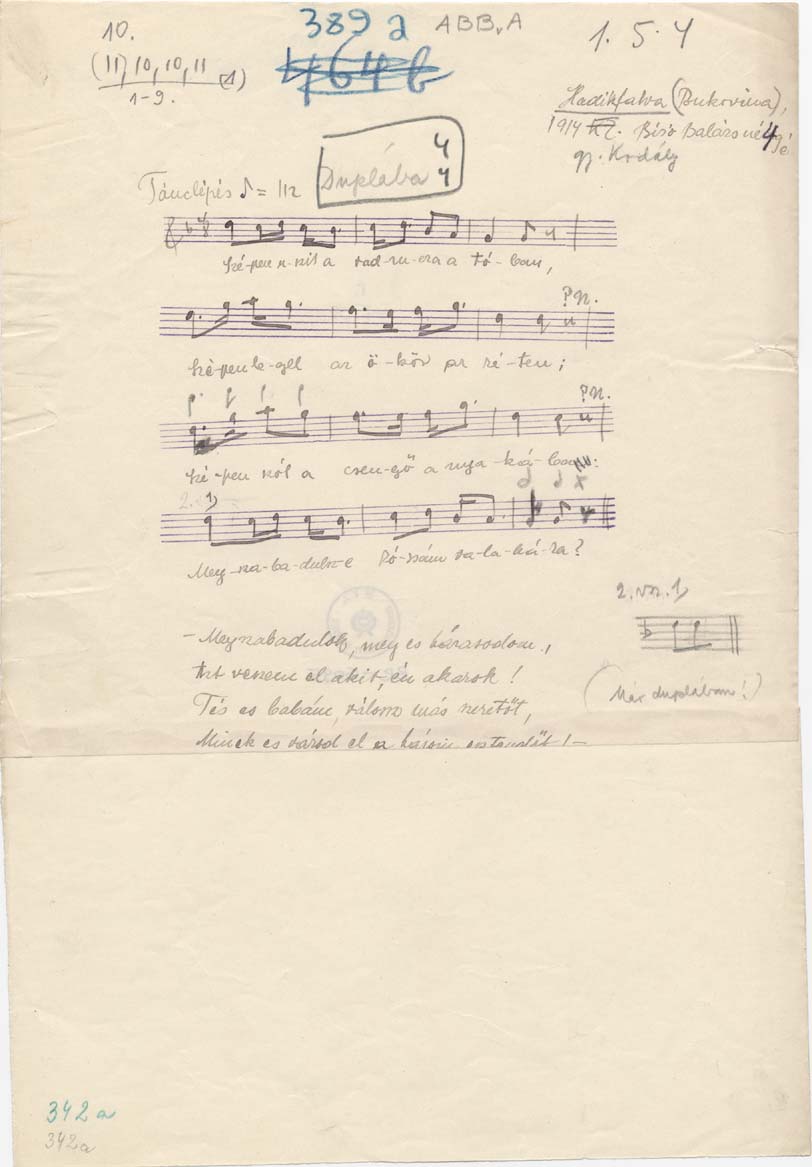 10.
389 a
ABBvA
1. 5. 4
(11) 10, 10, 11 (1)
1-9.
464 b
Hadikfalva (Bukovina),
1914 Bíró Balázsné
gy. Kodály
Tánclépés ♪ = 112
Duplába 4 4
Szé-pen u-szik a vad-ru-cza a tó-ban,
? n.
Szé-pen le-gel az ö-kör a ré-ten;
? n.
Szé-pen szól a csen-gő a nya-ká-ban:
2. 1)
Meg-sza-ba-dulsz-e ró-zsám va-la-há-ra?
2. vsz. 1)
- Megszabadulok, meg es házasodom,
Azt veszem el akit én akarok!
Tés es babám, válassz más szeretőt,
(Már duplában!)
Minek es várod el a három esztendőt! -
342 a
342a